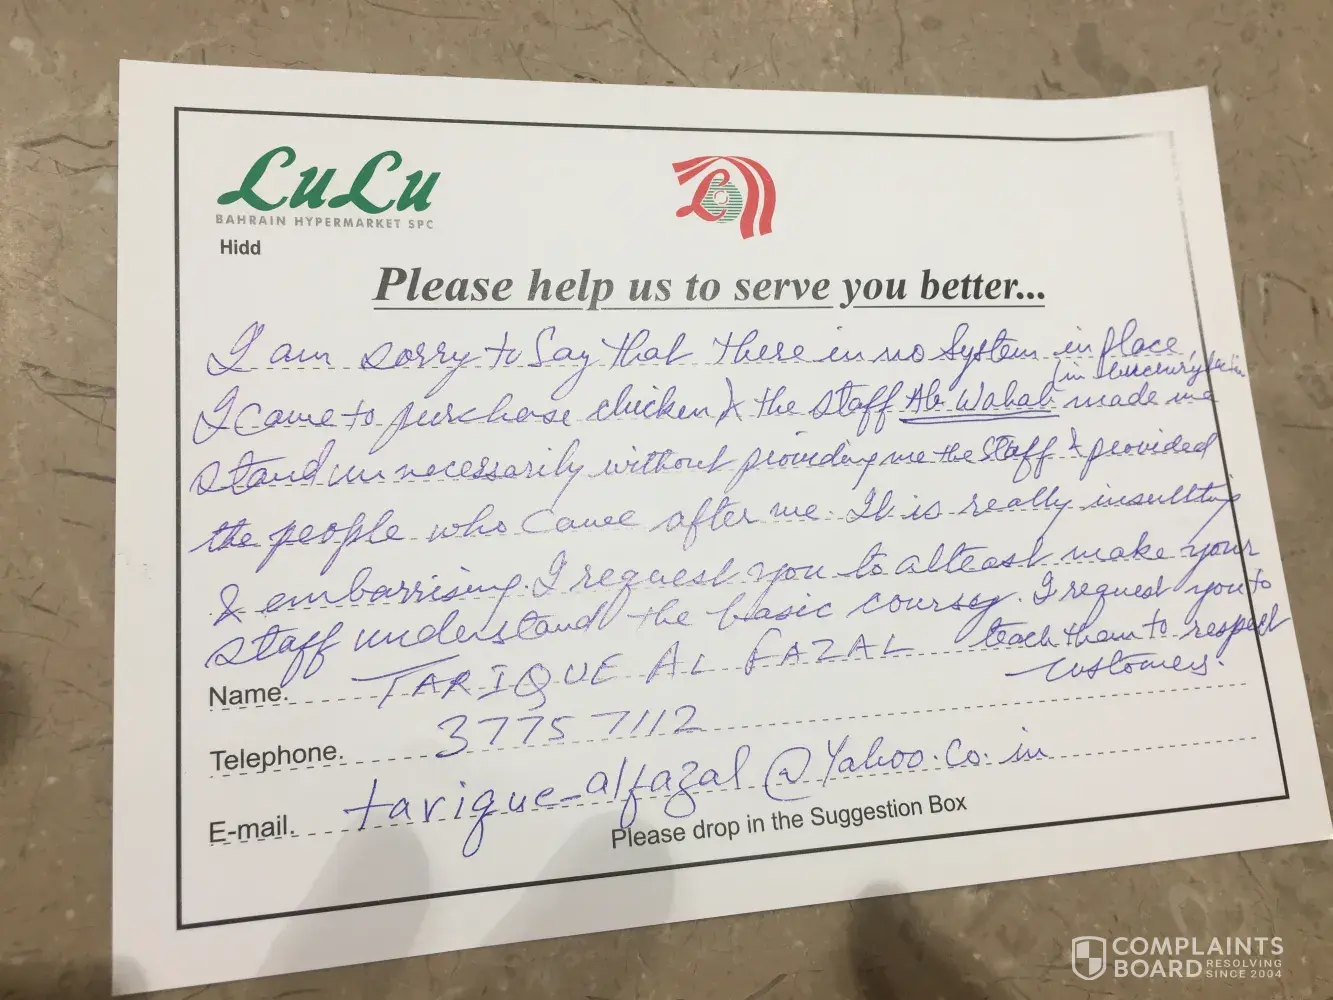 LuLu
BAHRAIN HYPERMARKET SPC
Hidd
L
Please help us to serve you better...
I am sorry to Say that there in no System in place
I came to purchase chicken & the staff Ab Wahab made me
stand unnecessarily without providing me the staff & provided
the people who came after me. It is really insultting
& embarrising. I request you to atleast make your
staff understand the basic coursy. I request you to
teach them to respect
customers.
Name. TARIQUE AL FAZAL
Telephone. 37757112
E-mail. tarique_alfazal@Yahoo.Co.in
Please drop in the Suggestion Box
COMPLAINTS
BOARD RESOLVING
SINCE 2004